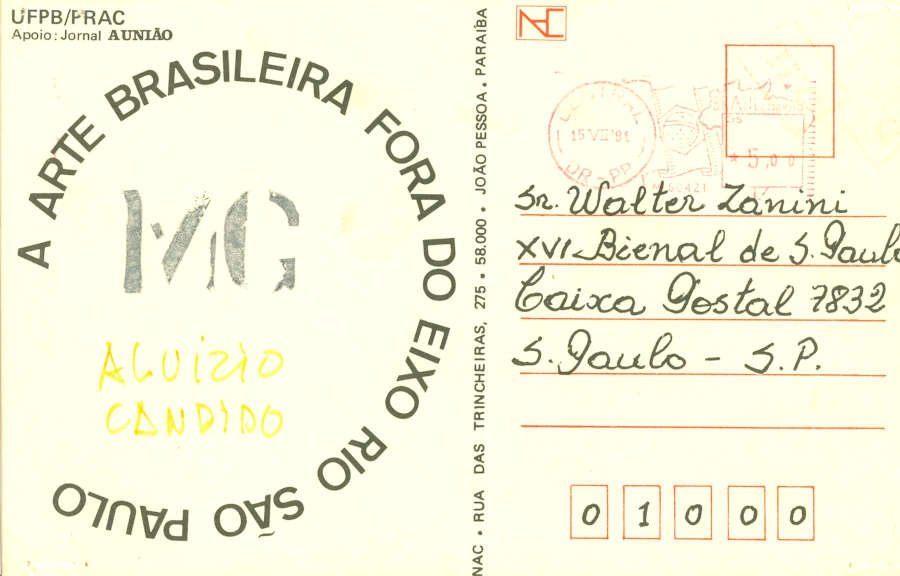 UFPB/PRAC
Apoio: Jornal A UNIÃO
A ARTE BRASILEIRA FORA DO EIXO RIO SÃO PAULO
MG
ALUÍZIO
CANDIDO
NAC • RUA DAS TRINCHEIRAS, 275 • 58.000 • JOÃO PESSOA • PARAÍBA
NAC
15 VII '81
DR-PP
* 5,00
Sr. Walter Zanini
XVI Bienal de S. Paulo
Caixa Postal 7832
S. Paulo - S.P.
0 1 0 0 0